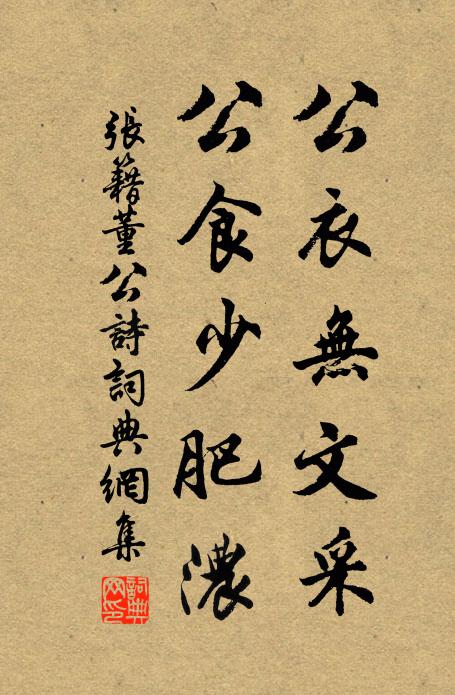 公衣無文采
公食少肥濃
張籍董公詩詞典網集
詞典網印